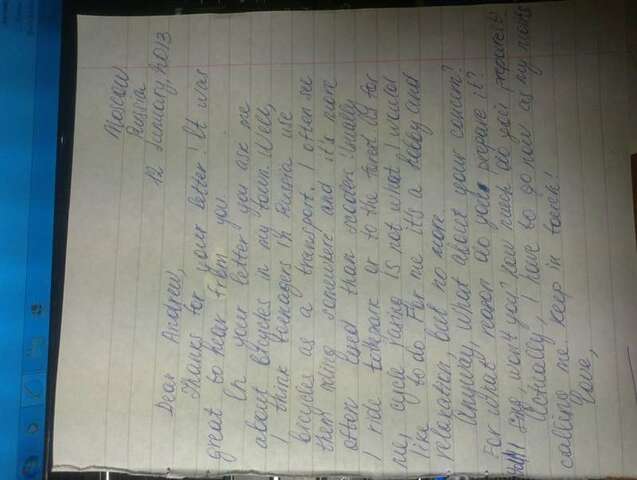 Moscow
Russia
12 January, 2013
Dear Andrew,
Thanks for your letter! It was
great to hear from you.
In your letter you ask me
about bicycles in my town. Well,
I think teenagers in Russia use
bicycles as a transport. I often see
them riding somewhere and it's more
often used than scooter. Usually
I ride to park or to the forest. As for
me, cycle racing is not what I would
like to do. For me it's a hobby and
relaxation but no more
Anyway, what about your concert?
For what reason do you prepare it?
sing, won't you? How much do you prepare it?
Actually, I have to go now as my mom's
calling me. Keep in touch!
Love,